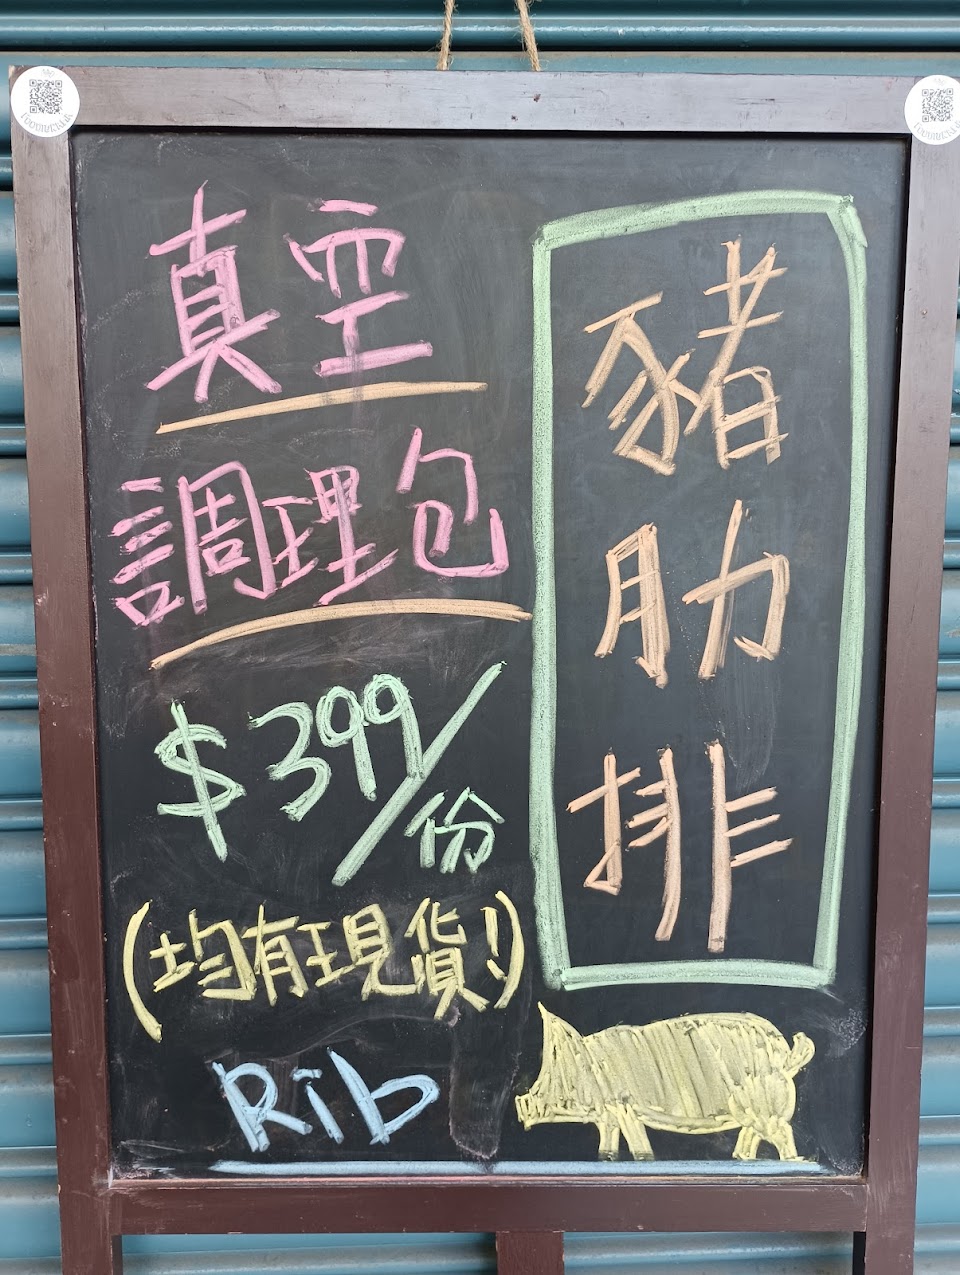 豬肋排
真空
調理包
$399/份
(均有現貨!)
Rib